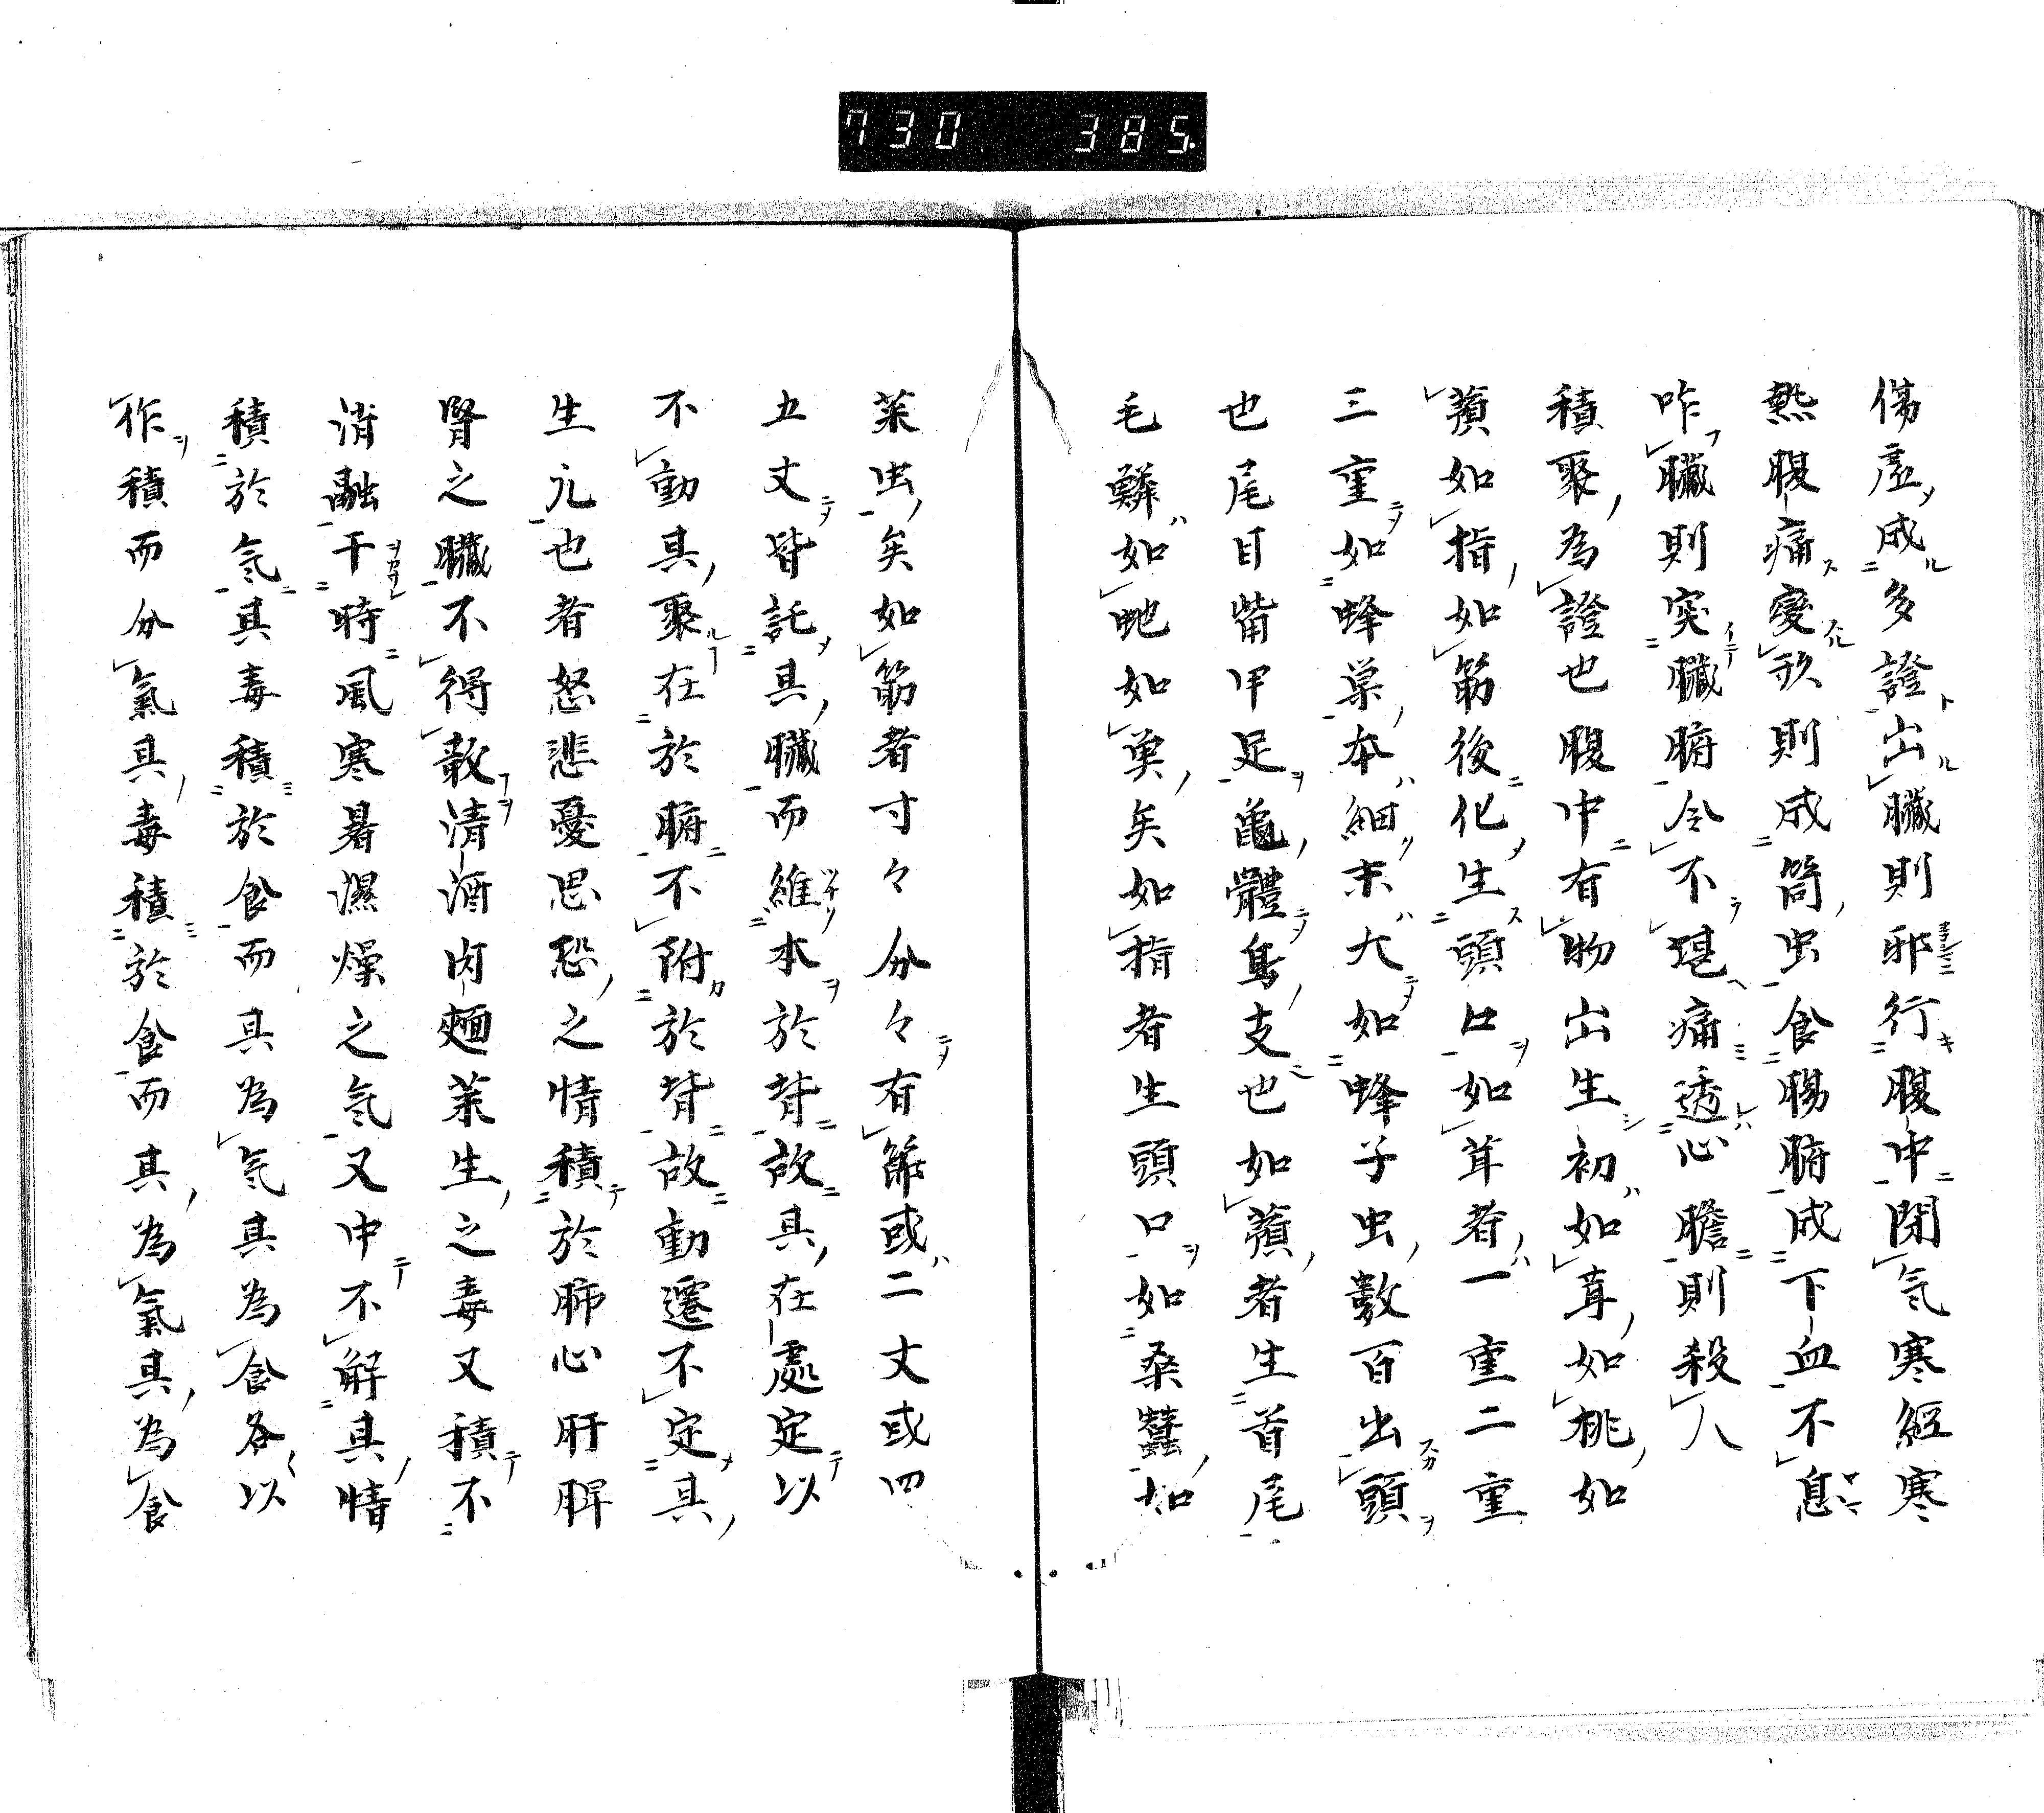 730 385.
傷虛成多證出臟則邪行腹中閉气寒經寒
熱腹痛變形則成筒虫食腸腑成下血不息
咋臟則突臟腑令不堪痛透心膽則殺人
積聚為證也腹中有物出生初如茸如桃如
蘋如指如筋後化生頭口如茸者一重二重
三重如蜂巢本細末大如蜂子虫數百出頭
也尾目觜甲足龜體鳥支也如蘋者生首尾
毛如虵如矣如指者生頭口如桑蠶如
菜虫矣如筋者寸々分々有節或二丈或四
五丈皆託其臟而維本於背故其在處定以
不動其聚在於腑不附於背故動遷不定其
生元也者怒悲憂思恐之情積於肺心肝脾
腎之臟不得散清酒肉麵菜生之毒又積不
消融干時風寒暑濕燥之气又中不解其情
積於气其毒積於食而其為气其為食各以
作積而分氣其毒積於食而其為氣其為食